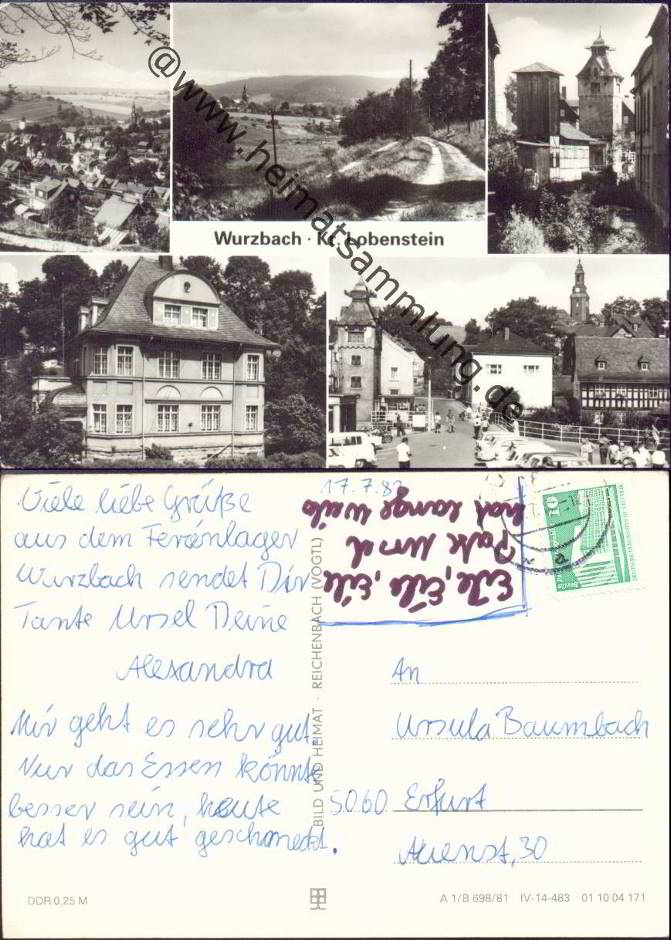 @www.heimatsammlung.de
Wurzbach · Kr. Lobenstein
17.7.82
Viele liebe Grüße
aus dem Ferienlager
Wurzbach sendet Dir
Tante Ursel Deine
Alexandra
Mir geht es sehr gut.
Nur das Essen könnte
besser sein, heute
hat es gut geschmeckt.
Eile, Eile, Eile
Pate Ursel
hat lange weile
10
BILD UND HEIMAT · REICHENBACH (VOGTL)
An
Ursula Baumbach
5060 Erfurt
Auenst. 30
DDR 0,25 M
A 1/B 698/81 IV-14-483 01 10 04 171